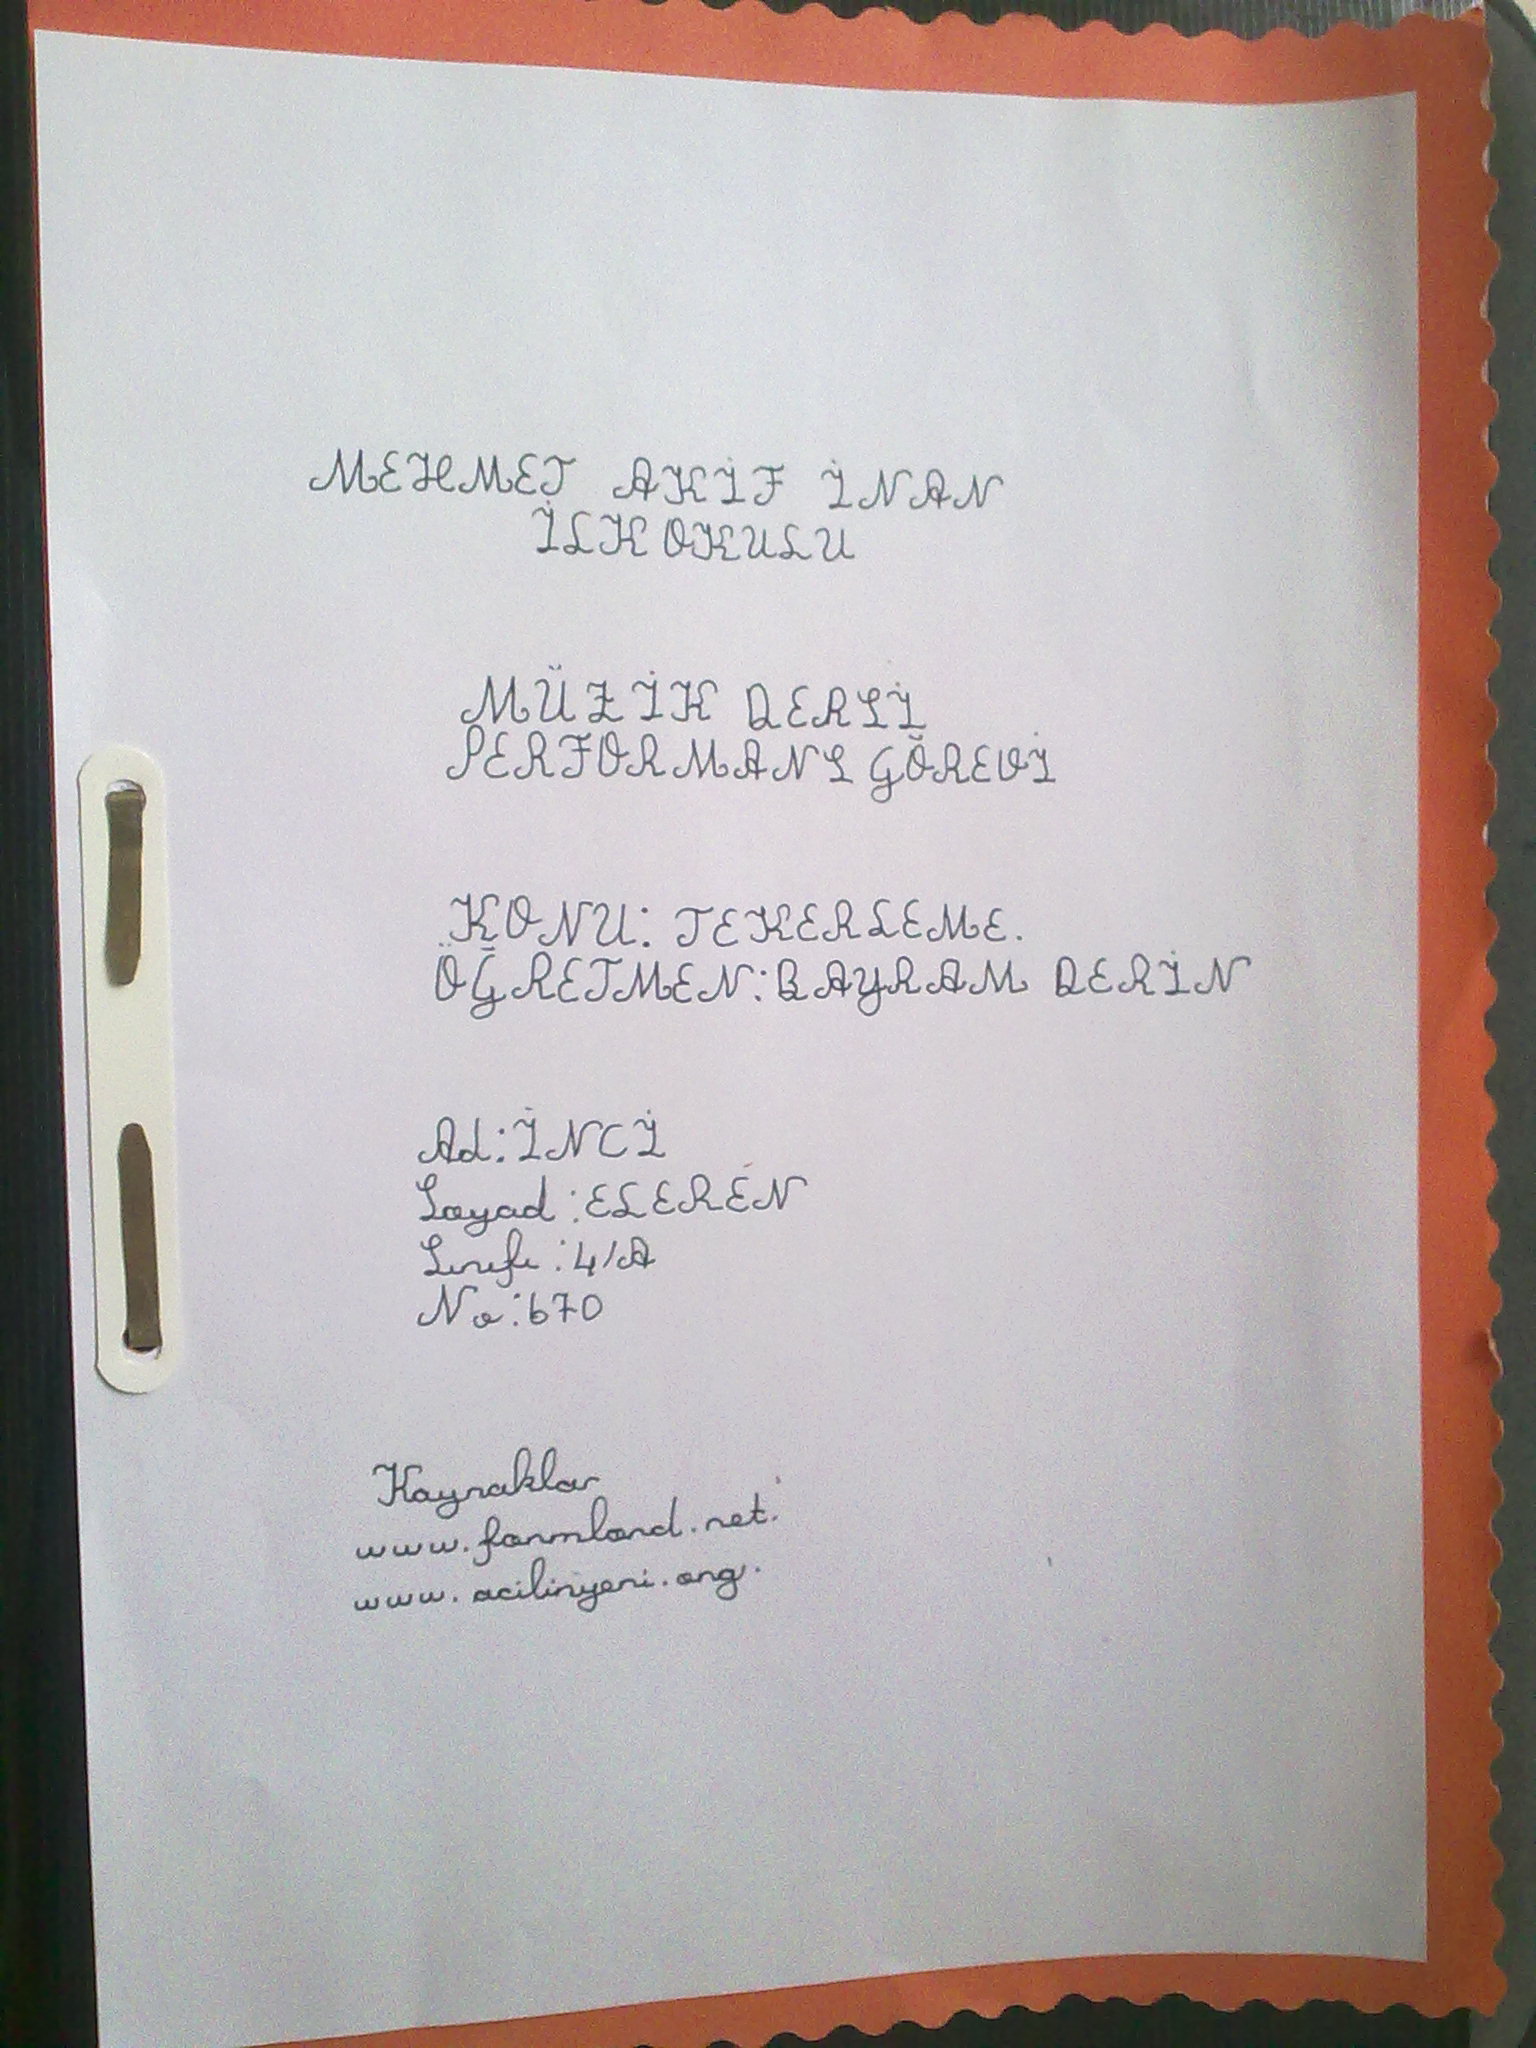 MEHMET AKİF İNAN
İLKOKULU
MÜZİK DERSİ
PERFORMANS GÖREVİ
KONU: TEKERLEME.
ÖĞRETMEN: BAYRAM DERİN
Ad: İNCİ
Soyad: ELEREN
Sınıfı: 4/A
No: 670
Kaynaklar
www.farmland.net.
www.acilinyeni.org.